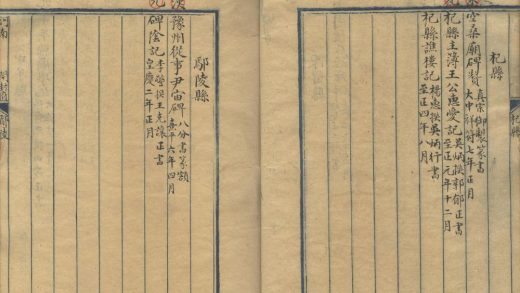 杞縣
空桑廟碑贊 真宗御製篆書 大中祥符七年正月
杞縣主簿王公遺愛記 吳炳撰郭郁正書 至正元年十二月
杞縣譙樓記 楊惠撰吳炳行書 至正四年八月
鄢陵縣
豫州從事尹宙碑 八分書篆額 熹平六年四月
碑陰記 李瑩撰王克讓正書 皇慶二年正月
杞縣